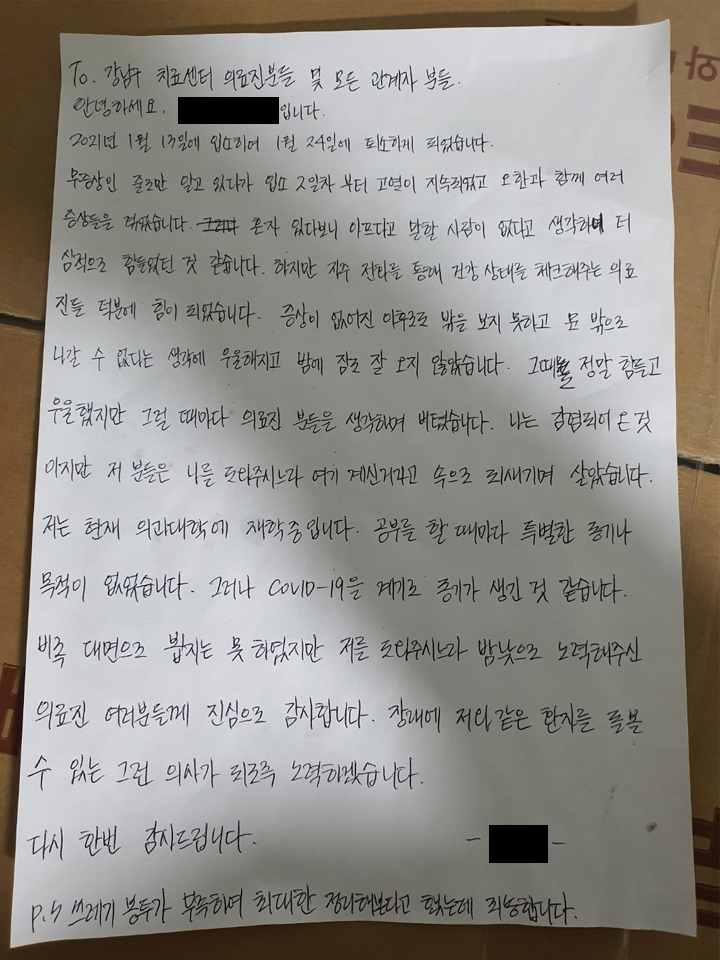 To. 강남구 치료센터 의료진분들 및 모든 관계자 분들.
안녕하세요. 입니다.
2021년 1월 13일에 입소하여 1월 24일에 퇴소하게 되었습니다.
무증상인 줄로만 알고 있다가 입소 2일차 부터 고열이 지속되었고 오한과 함께 여러
증상들을 겪었습니다. 혼자 있다보니 아프다고 말할 사람이 없다고 생각하여 더
심적으로 힘들었던 것 같습니다. 하지만 자주 전화를 통해 건강 상태를 체크해주는 의료
진들 덕분에 힘이 되었습니다. 증상이 없어진 이후로도 밖을 보지 못하고 문 밖으로
나갈 수 없다는 생각에 우울해지고 밤에 잠도 잘 오지 않았습니다. 그때를 정말 힘들고
우울했지만 그럴 때마다 의료진 분들을 생각하며 버텼습니다. 나는 감염되어 온 것
이지만 저 분들은 나를 도와주시느라 여기 계신거라고 속으로 되새기며 살았습니다.
저는 현재 의과대학에 재학중입니다. 공부를 할 때마다 특별한 동기나
목적이 없었습니다. 그러나 COVID-19을 계기로 동기가 생긴 것 같습니다.
비록 대면으로 뵙지는 못 하였지만 저를 도와주시느라 밤낮으로 노력해주신
의료진 여러분들께 진심으로 감사합니다. 장래에 저와 같은 환자를 돌볼
수 있는 그런 의사가 되도록 노력하겠습니다.
다시 한번 감사드립니다. - -
p.s 쓰레기 봉투가 부족하여 최대한 정리해본다고 했는데 죄송합니다.